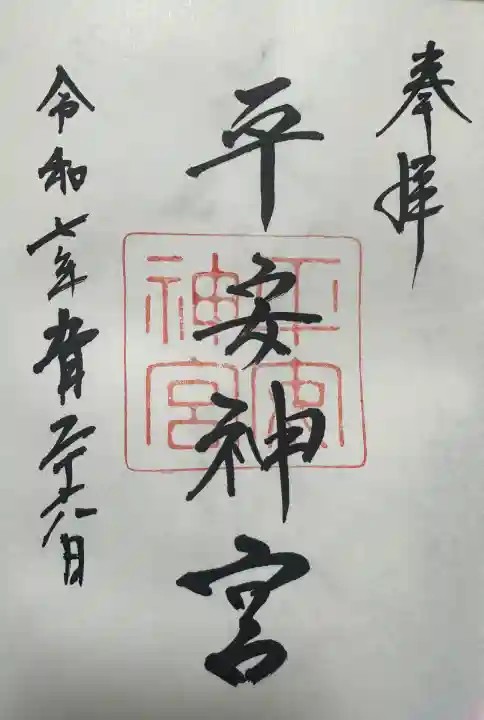 奉拝
平安神宮
平安神宮
令和七年九月二十八日